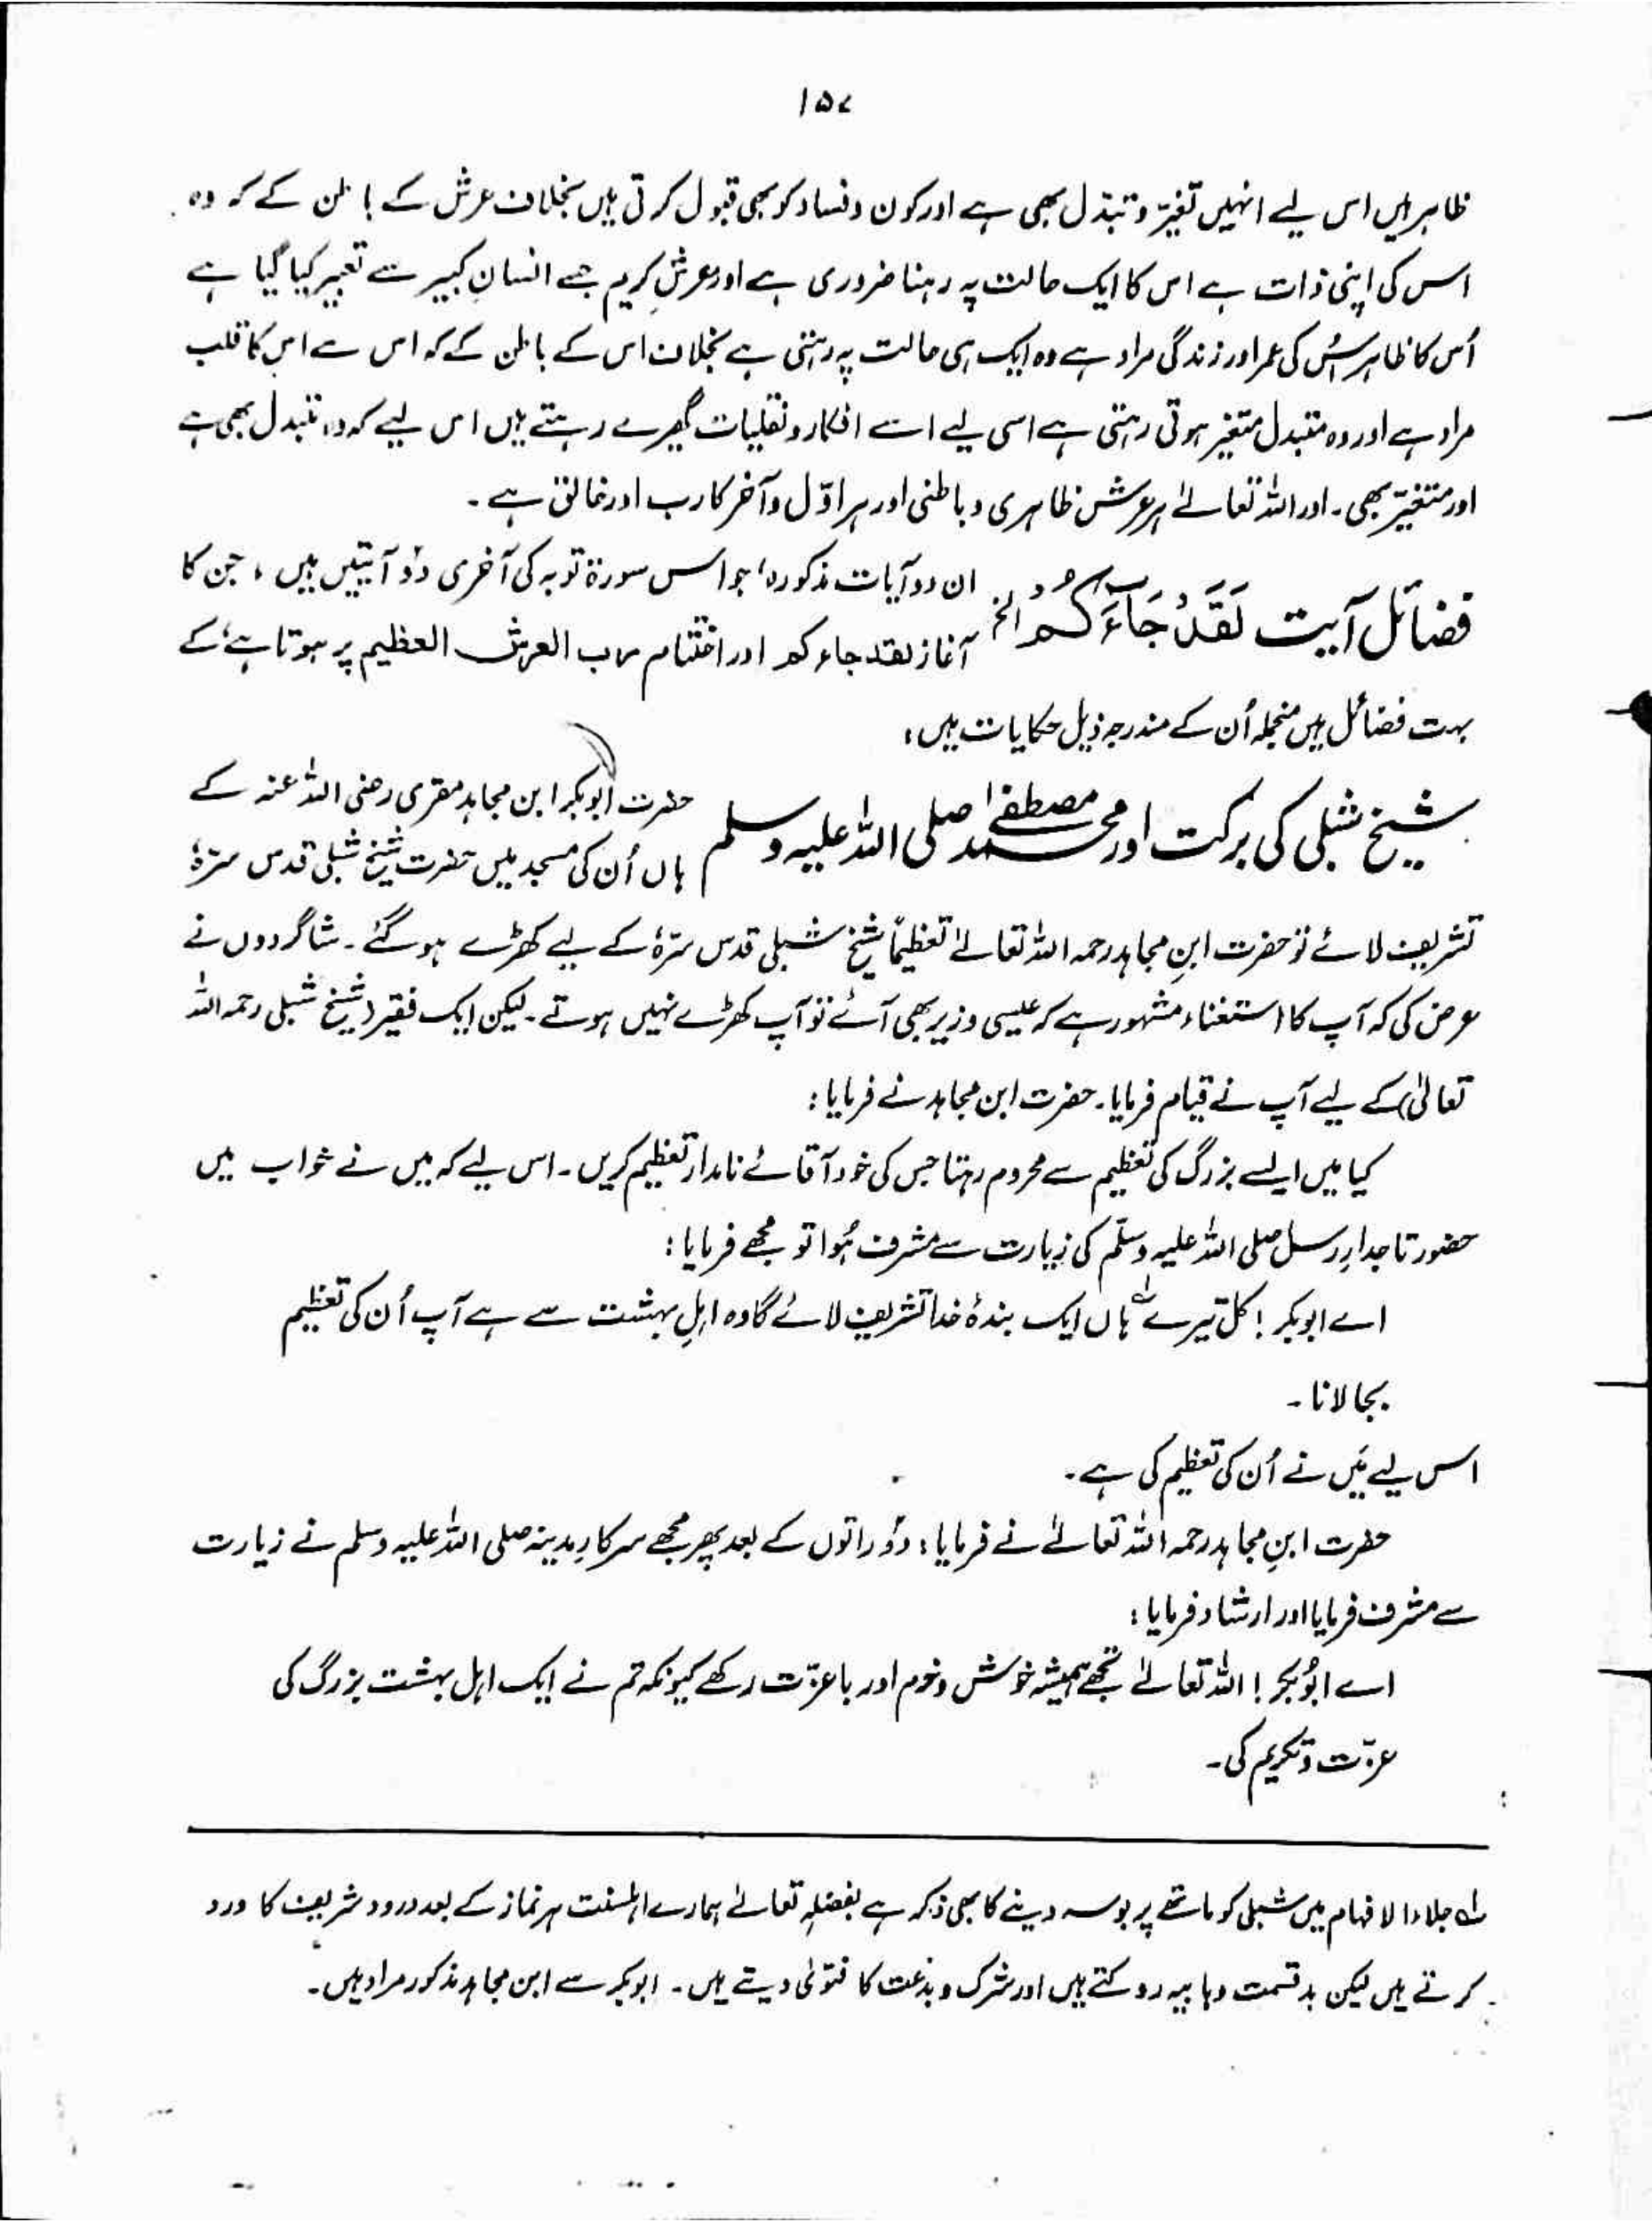 ۱۵۷
ظاہر ہیں اس لیے انہیں تغیّر و تبدّل بھی ہے اور کون و فساد کو بھی قبول کرتی ہیں بخلاف عرش کے باطن کے کہ وہ
اس کی اپنی ذات ہے اس کا ایک حالت پہ رہنا ضروری ہے اور عرشِ کریم جسے انسانِ کبیر سے تعبیر کیا گیا ہے
اُس کا ظاہر اُس کی عمر اور زندگی مراد ہے وہ ایک ہی حالت پہ رہتی ہے بخلاف اس کے باطن کے کہ اس سے اس کا قلب
مراد ہے اور وہ متبدل متغیر ہوتی رہتی ہے اسی لیے اسے افکار و تقلیبات گھیرے رہتے ہیں اس لیے کہ وہ متبدل بھی ہے
اور متغیّر بھی۔ اور اللہ تعالےٰ ہر عرش ظاہری و باطنی اور ہر اوّل و آخر کا رب اور خالق ہے۔
فضائل آیت لَقَدْ جَآءَكُمْ الخ
ان دو آیات مذکورہ، جو اس سورۃ توبہ کی آخری دو آیتیں ہیں، جن کا
آغاز لقد جاءکم اور اختتام رب العرش العظیم پر ہوتا ہے، کے
بہت فضائل ہیں منجملہ اُن کے مندرجہ ذیل حکایات ہیں:
شیخ شبلی کی برکت اور محمد مصطفےٰ صلی اللہ علیہ وسلم
حضرت ابوبکر ابن مجاہد مقری رضی اللہ عنہ کے
ہاں اُن کی مسجد میں حضرت شیخ شبلی قدس سرّہٗ
تشریف لائے تو حضرت ابنِ مجاہد رحمہ اللہ تعالےٰ تعظیماً شیخ شبلی قدس سرّہٗ کے لیے کھڑے ہو گئے۔ شاگردوں نے
عرض کی کہ آپ کا استغناء مشہور ہے کہ عیسی وزیر بھی آئے تو آپ کھڑے نہیں ہوتے۔ لیکن ایک فقیر (شیخ شبلی رحمہ اللہ
تعالیٰ) کے لیے آپ نے قیام فرمایا۔ حضرت ابن مجاہد نے فرمایا:
کیا میں ایسے بزرگ کی تعظیم سے محروم رہتا جس کی خود آقائے نامدار تعظیم کریں۔ اس لیے کہ میں نے خواب میں
حضور تاجدارِ رسل صلی اللہ علیہ وسلّم کی زیارت سے مشرف ہُوا تو مجھے فرمایا:
اے ابوبکر! کل تیرے ہاں ایک بندۂ خدا تشریف لائے گا وہ اہلِ بہشت سے ہے آپ اُن کی تعظیم
بجا لانا۔
اس لیے مَیں نے اُن کی تعظیم کی ہے۔
حضرت ابنِ مجاہد رحمہ اللہ تعالےٰ نے فرمایا: دو راتوں کے بعد پھر مجھے سرکارِ مدینہ صلی اللہ علیہ وسلم نے زیارت
سے مشرف فرمایا اور ارشاد فرمایا:
اے ابُوبکر! اللہ تعالےٰ تجھے ہمیشہ خوش و خرم اور باعزّت رکھے کیونکہ تم نے ایک اہل بہشت بزرگ کی
عزّت و تکریم کی۔
لہ جلاء الافہام میں شبلی کو ماتھے پر بوسہ دینے کا بھی ذکر ہے بفضلہٖ تعالےٰ ہمارے اہلسنت ہر نماز کے بعد درود شریف کا ورد
کرتے ہیں لیکن بدقسمت وہابیہ روکتے ہیں اور شرک و بدعت کا فتویٰ دیتے ہیں۔ ابوبکر سے ابن مجاہد مذکور مراد ہیں۔